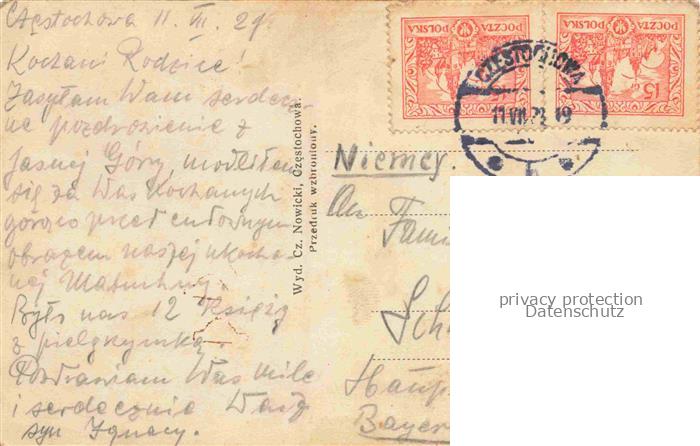 Częstochowa 11. VII. 29
Kochani Rodzice!
Zasyłam Wam serdecz-
ne pozdrozienie z
Jasnej Góry, modliłem
się za Was Kochanych
gorąco przed cudownym
obrazem naszej ukocha-
nej Matuchny.
Było nas 12 Księży
z pielgrzymką.
Pozdrawiam Was mile
i serdecznie Wasz
syn Ignacy.
Wyd. Cz. Nowicki, Częstochowa.
Przedruk wzbroniony.
POCZTA POLSKA
15
POCZTA POLSKA
CZĘSTOCHOWA
11 VII. 29 19
Niemcy.
An
Fami
Sch
Haup
Bayer
privacy protection
Datenschutz